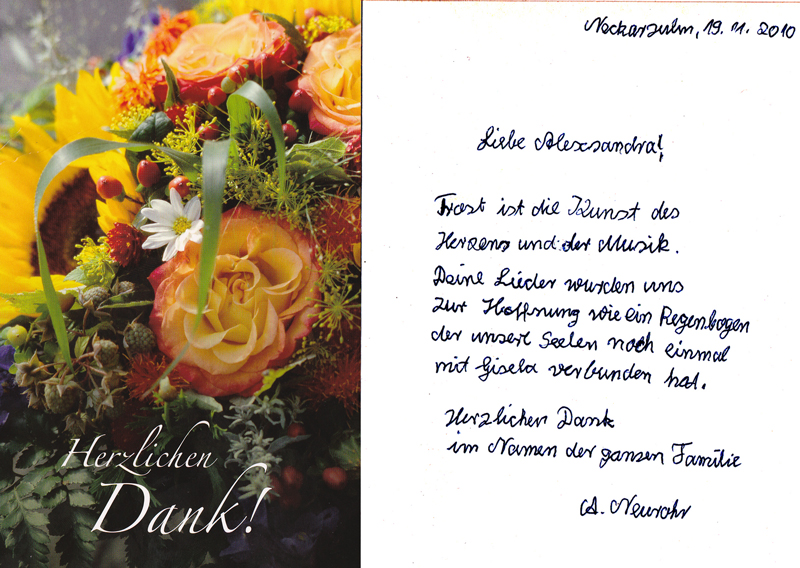 Herzlichen
Dank!
Neckarsulm, 19. 11. 2010
Liebe Alexsandra!
Trost ist die Kunst des
Herzens und der Musik.
Deine Lieder wurden uns
zur Hoffnung wie ein Regenbogen
der unsere Seelen noch einmal
mit Gisela verbunden hat.
Herzlichen Dank
im Namen der ganzen Familie
A. Neurohr